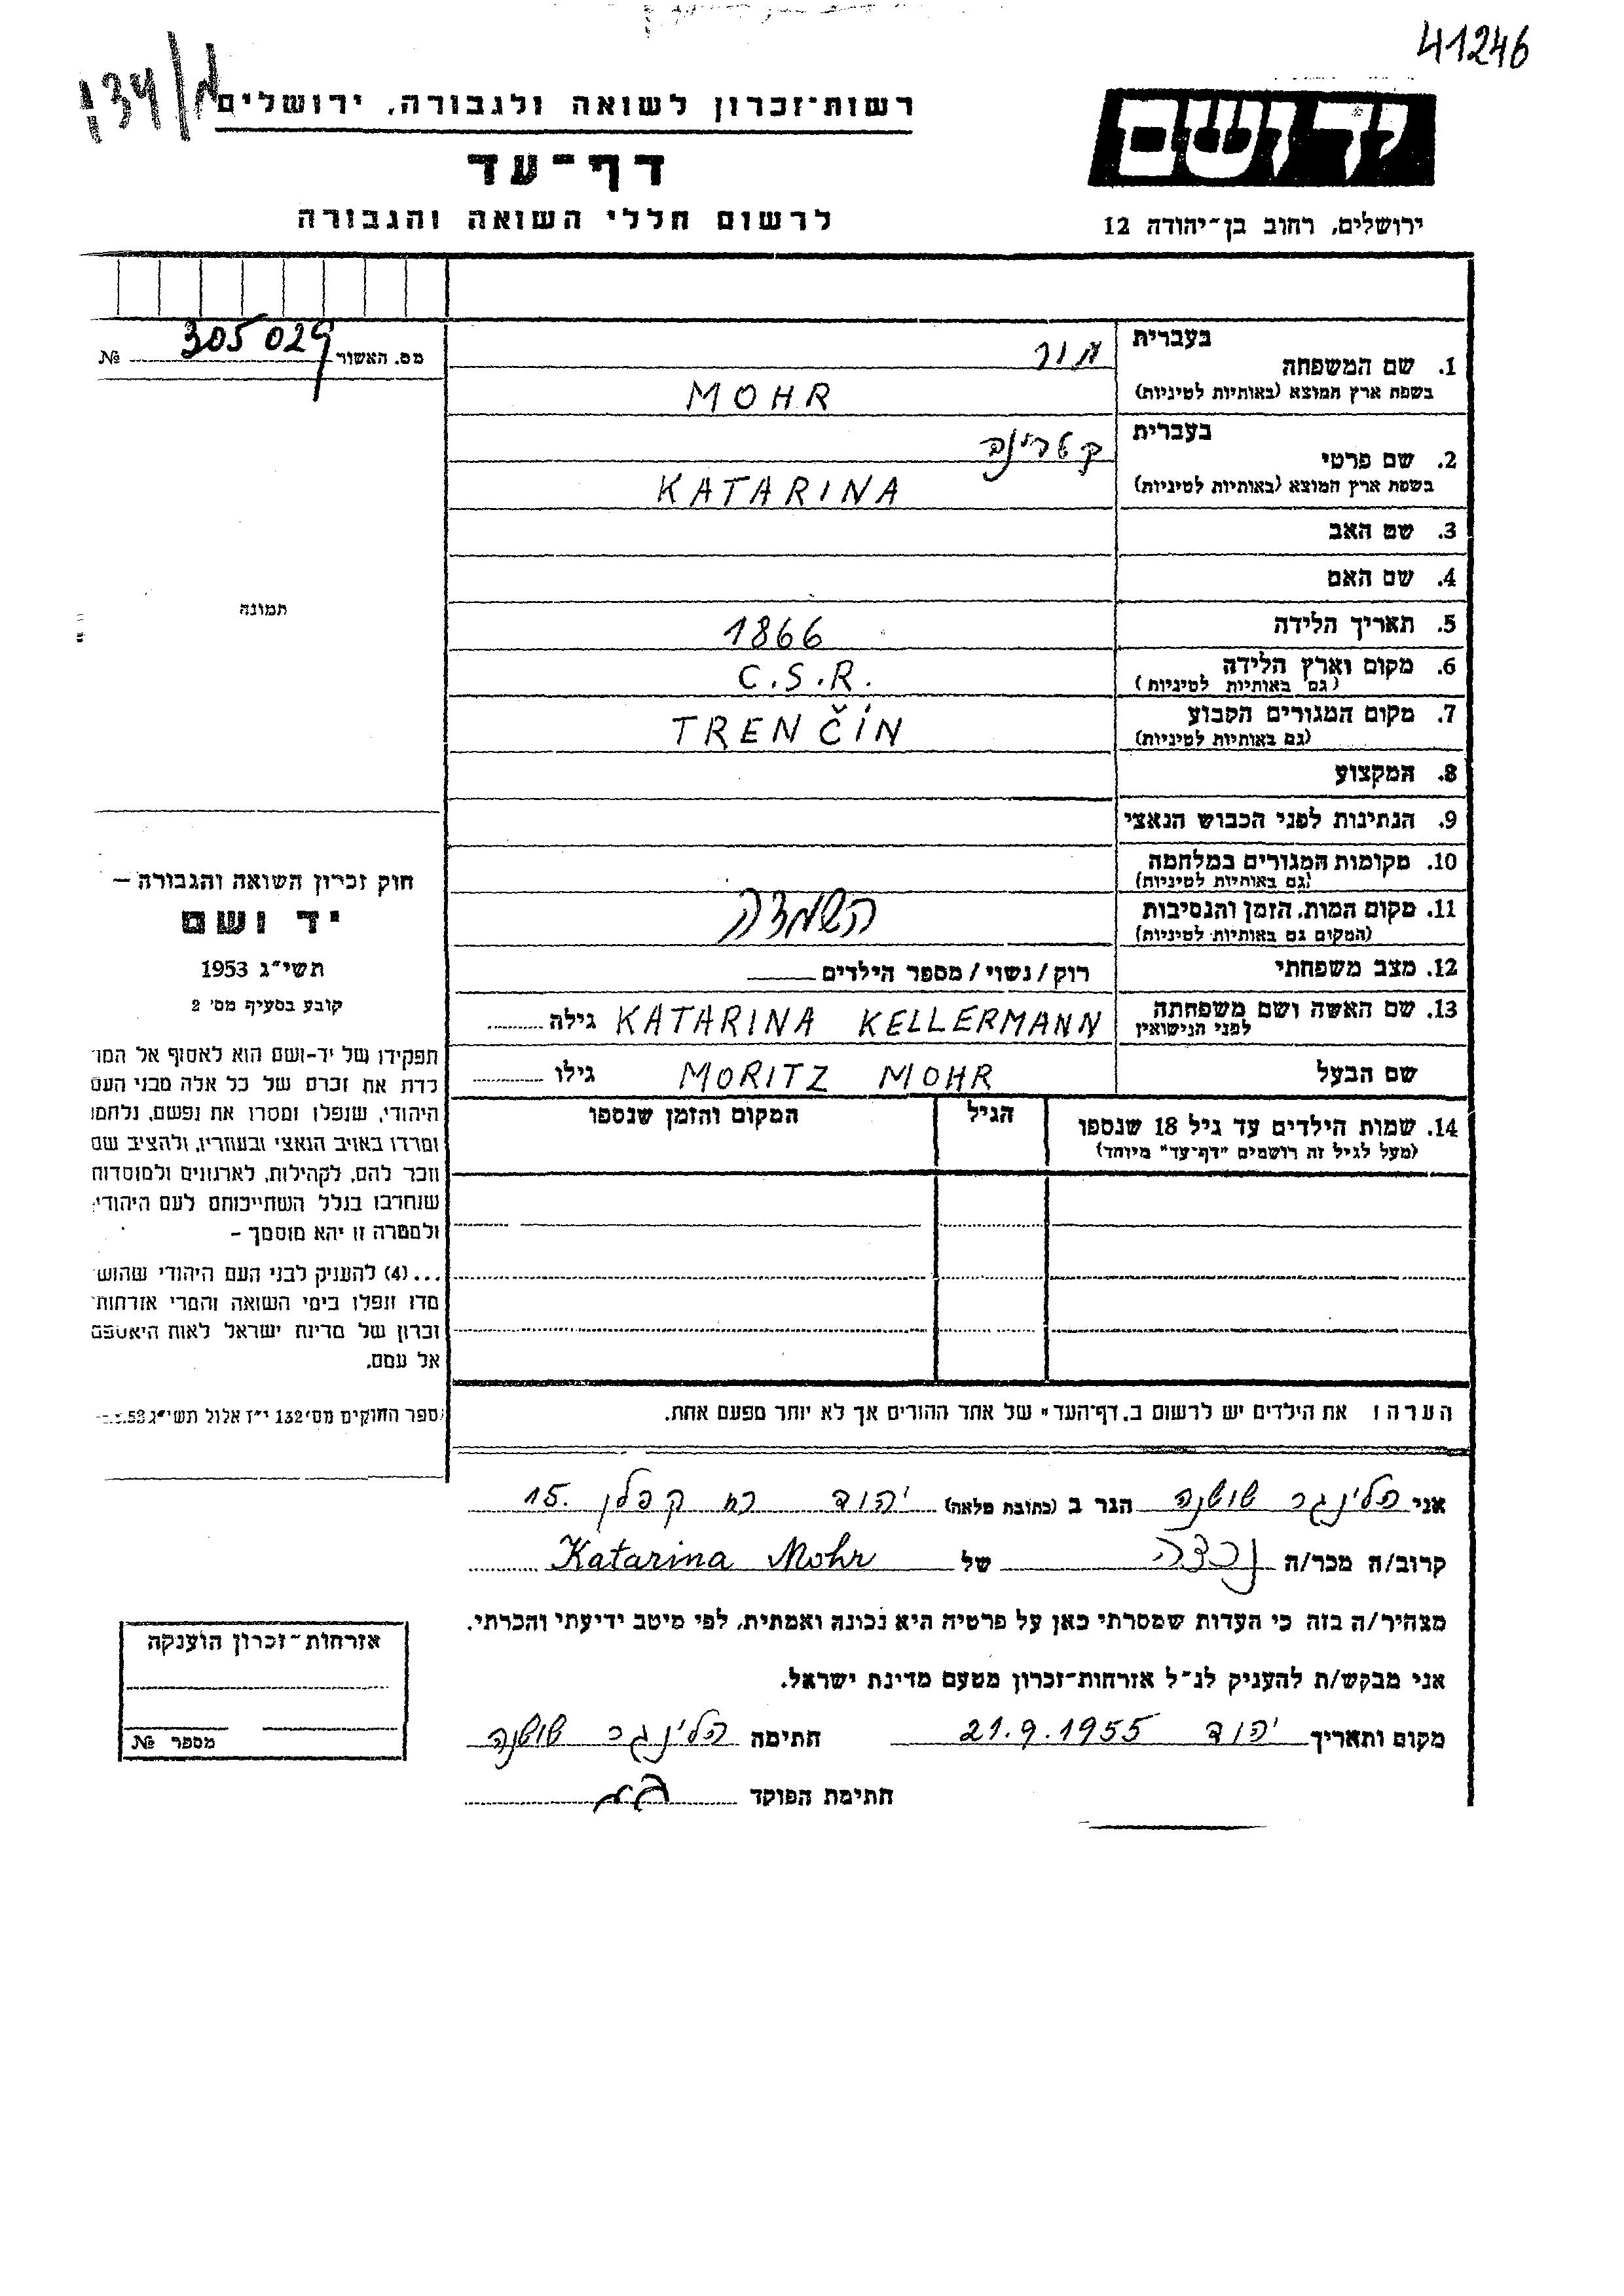 41246
רשות־זכרון לשואה ולגבורה, ירושלים
דף־עד
לרשום חללי השואה והגבורה
יד ושם
ירושלים, רחוב בן־יהודה 12
מס. האשור 305029 №
תמונה
בעברית מור
1. שם המשפחה
בשפת ארץ המוצא (באותיות לטיניות) MOHR
בעברית קטרינה
2. שם פרטי
בשפת ארץ המוצא (באותיות לטיניות) KATARINA
3. שם האב
4. שם האם
5. תאריך הלידה 1866
6. מקום וארץ הלידה C.S.R.
(גם באותיות לטיניות)
7. מקום המגורים הקבוע TRENČÍN
(גם באותיות לטיניות)
8. המקצוע
9. הנתינות לפני הכבוש הנאצי
10. מקומות המגורים במלחמה
(גם באותיות לטיניות)
11. מקום המות, הזמן והנסיבות השמדה
(המקום גם באותיות לטיניות)
12. מצב משפחתי רוק/נשוי/מספר הילדים
13. שם האשה ושם משפחתה KATARINA KELLERMANN גילה
לפני הנישואין
שם הבעל MORITZ MOHR גילו
14. שמות הילדים עד גיל 18 שנספו הגיל המקום והזמן שנספו
(מעל לגיל זה רושמים "דף־עד" מיוחד)
חוק זכרון השואה והגבורה –
יד ושם
תשי"ג 1953
קובע בסעיף מס' 2
תפקידו של יד-ושם הוא לאסוף אל המו
לדת את זכרם של כל אלה מבני העם
היהודי, שנפלו ומסרו את נפשם, נלחמו
ומרדו באויב הנאצי ובעוזריו, ולהציב שם
וזכר להם, לקהילות, לארגונים ולמוסדות
שנחרבו בגלל השתייכותם לעם היהודי,
ולמטרה זו יהא מוסמך –
...(4) להעניק לבני העם היהודי שהוש
מדו ונפלו בימי השואה והמרי אזרחות־
זכרון של מדינת ישראל לאות היאספם
אל עמם.
ספר החוקים מס' 132 י"ז אלול תשי"ג
הערה: את הילדים יש לרשום ב„דף־העד" של אחד ההורים אך לא יותר מפעם אחת.
אני הלינגר שושנה הגר ב (כתובת מלאה) יהוד רח קפלן 15.
קרוב/ה מכר/ה נכדה של Katarina Mohr
מצהיר/ה בזה כי העדות שמסרתי כאן על פרטיה היא נכונה ואמתית, לפי מיטב ידיעתי והכרתי.
אני מבקש/ת להעניק לנ"ל אזרחות־זכרון מטעם מדינת ישראל.
מקום ותאריך יהוד 21.9.1955 חתימה הלינגר שושנה
חתימת הפוקד
אזרחות־זכרון הוענקה
מספר №